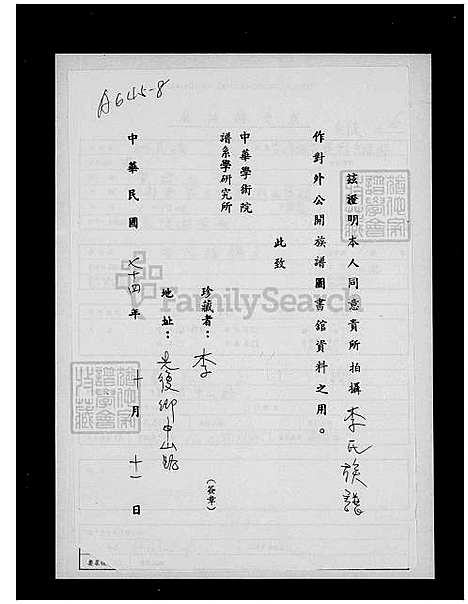 A645-8
茲證明本人同意貴所拍攝李氏族譜
作對外公開族譜圖書館資料之用。
此致
中華學術院
譜系學研究所
珍藏者：李
(簽章)
地址：光復鄉中山路
中華民國 七十四年 十月 十一日
FamilySearch